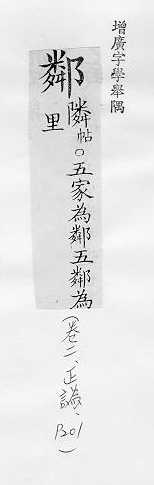 增廣字學舉隅
鄰 隣帖○五家為鄰五鄰為里
(卷二、正譌、1201)